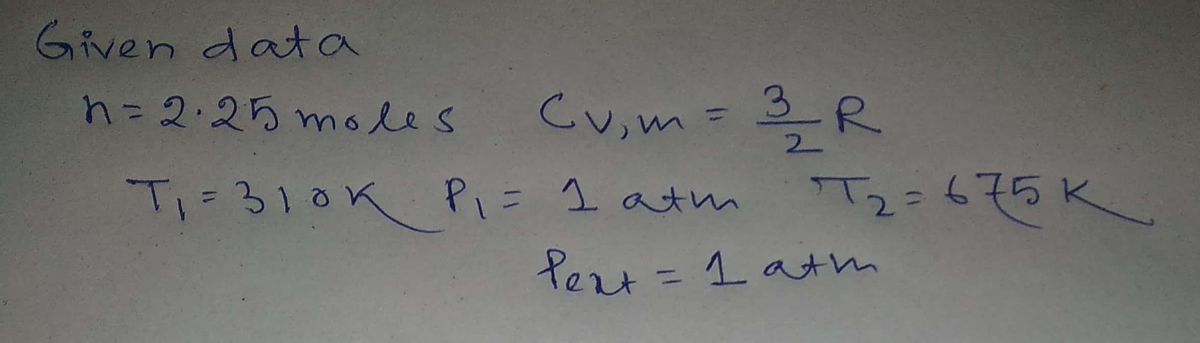 Given data
n = 2.25 moles Cv,m = 3/2 R
T₁ = 310K P₁ = 1 atm T₂ = 675 K
Pext = 1 atm